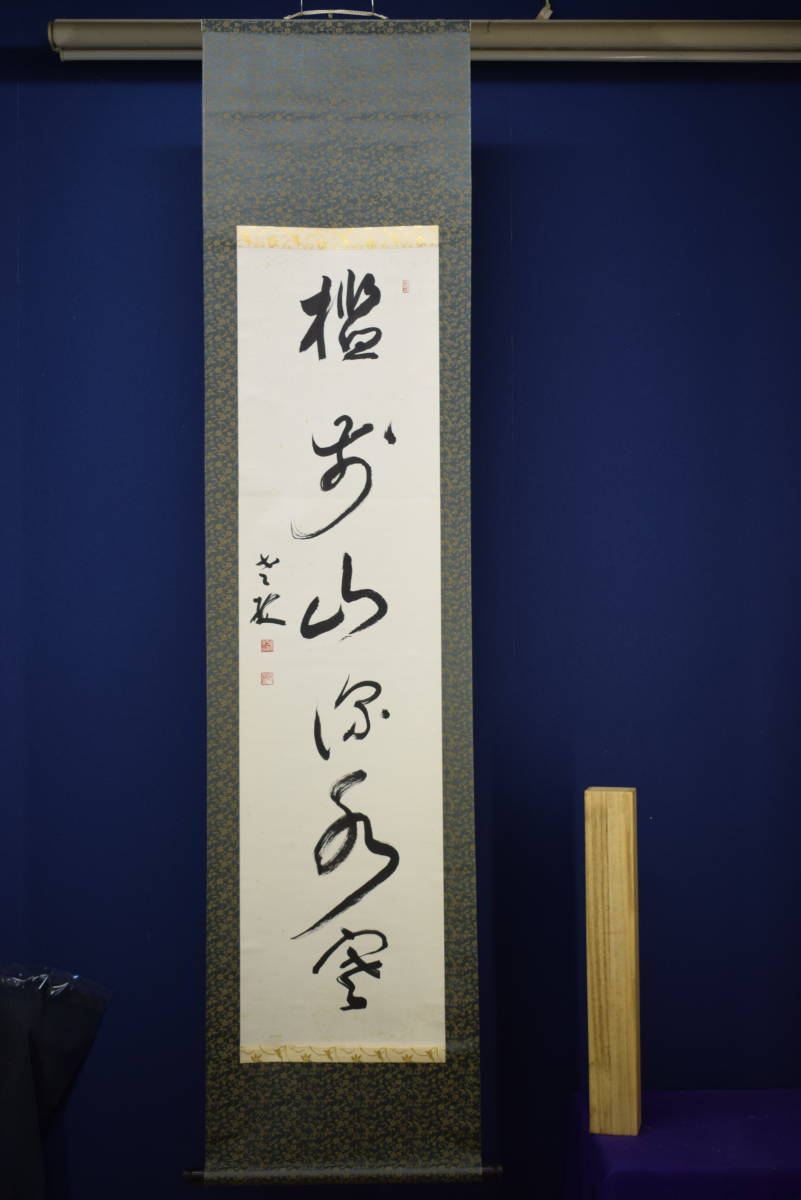 檻前山深水寒